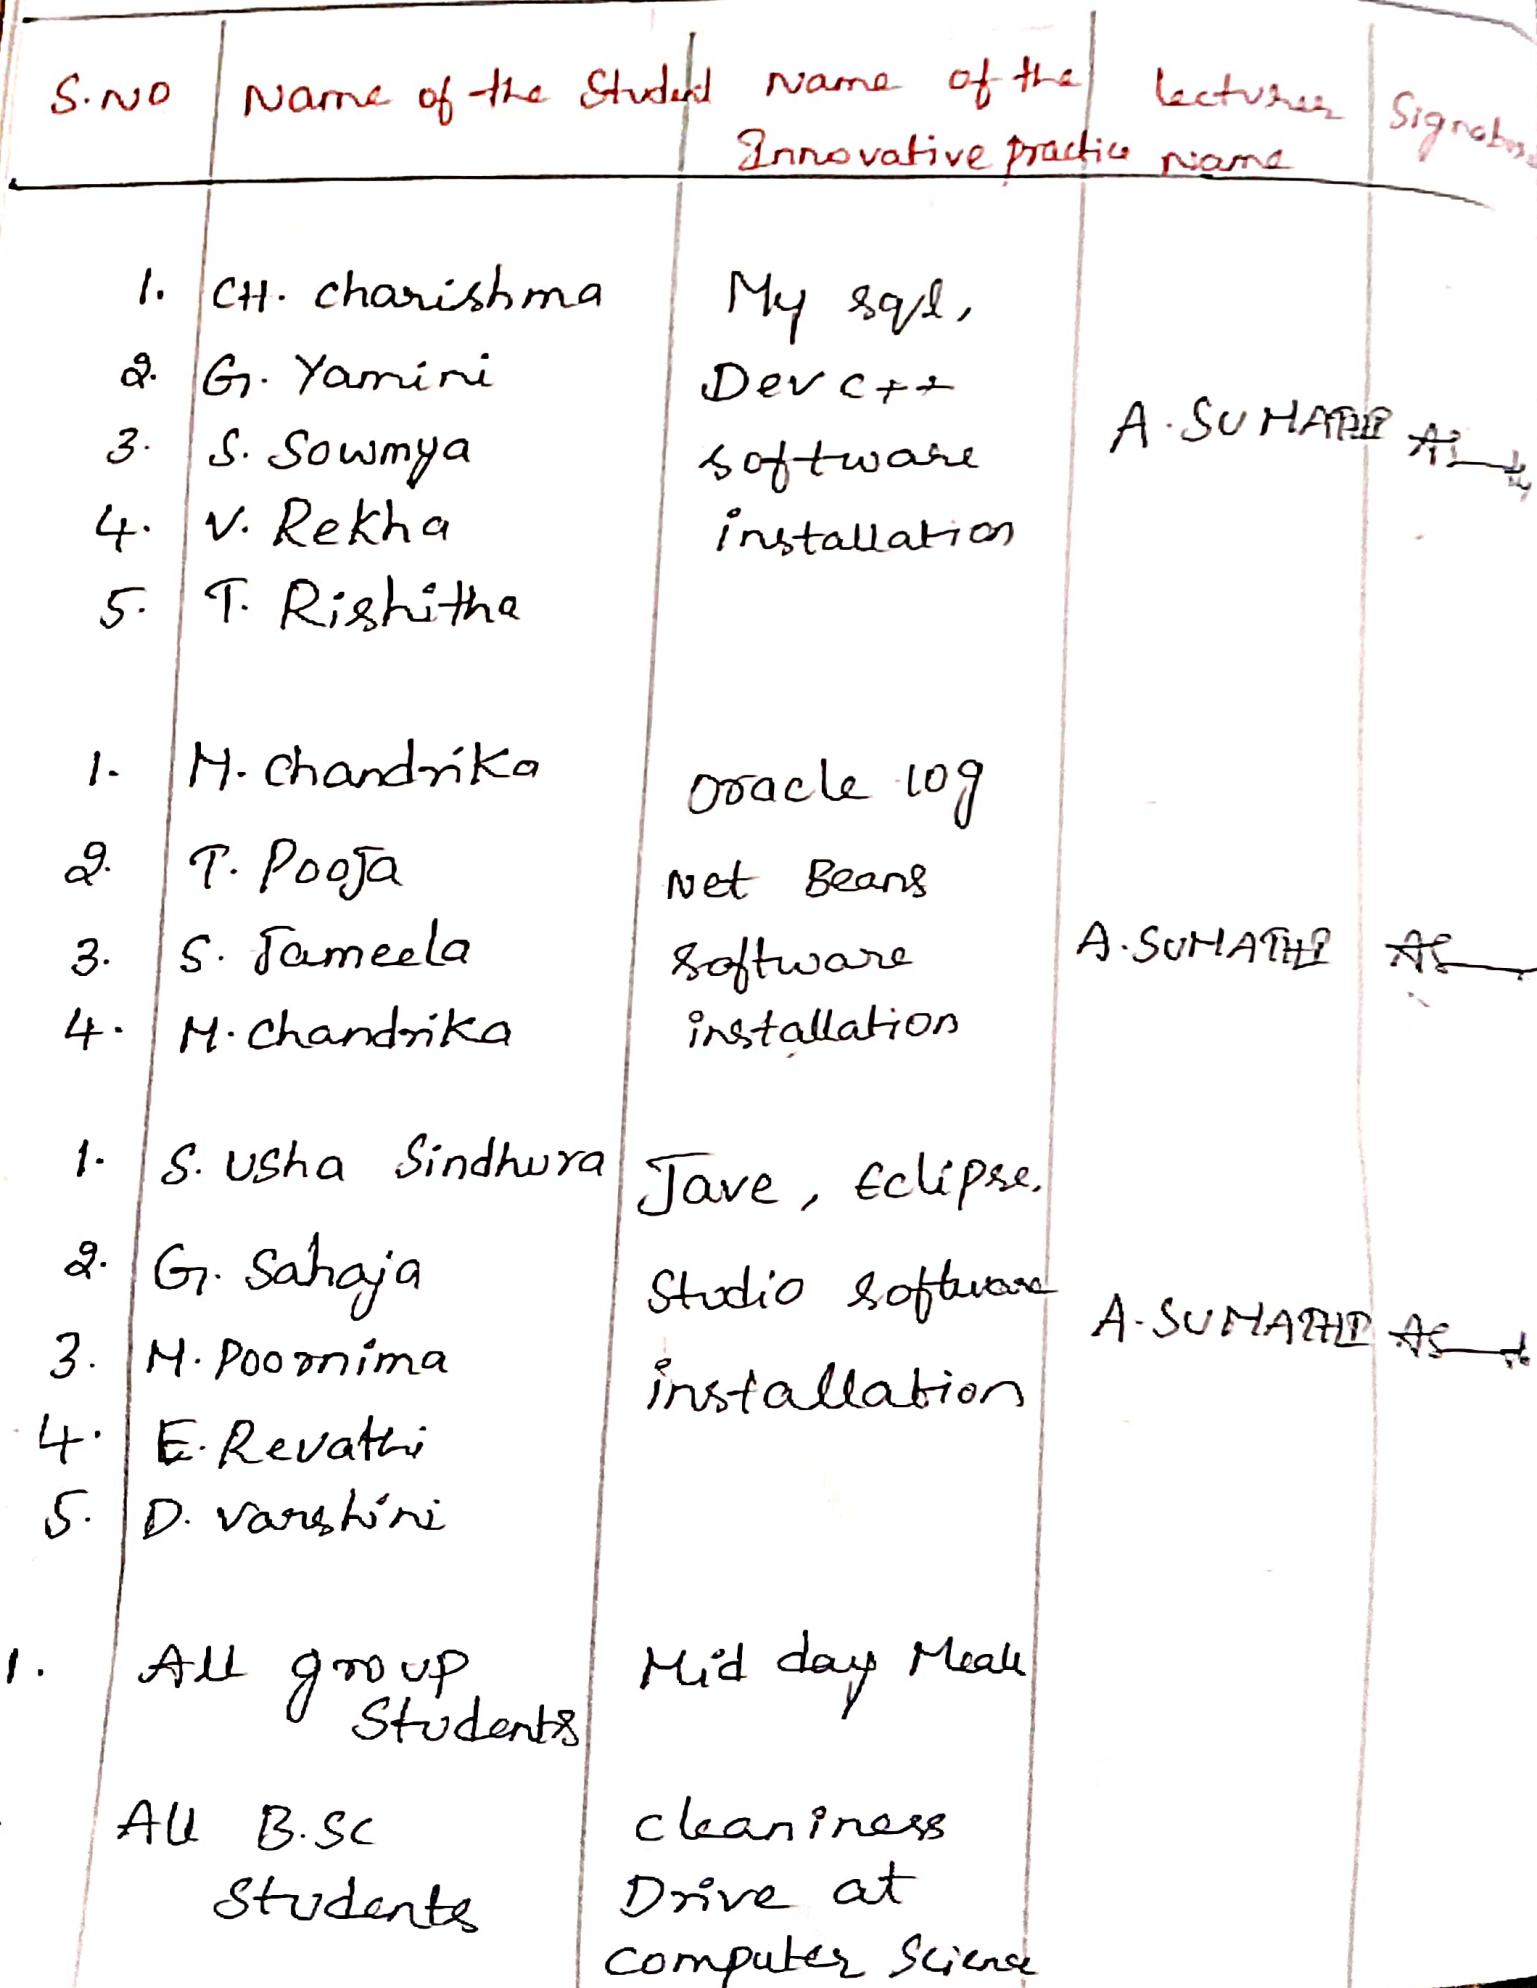 S.NO Name of the Student Name of the lecturer Signature
Innovative practice Name
1. CH. charishma My sql,
2. G. Yamini Dev c++
A. SUMATHI
3. S. Sowmya software
4. V. Rekha installation
5. T. Rishitha
1. M. chandrika oracle 10g
2. T. Pooja Net Beans
3. S. Jameela software A. SUMATHI AS
4. M. chandrika installation
1. S. Usha Sindhura Jave, Eclipse.
2. G. Sahaja Studio software
A. SUMATHI AS
3. M. Poornima installation
4. E. Revathi
5. D. varshini
1. All group Mid day Meals
Students
All B.SC cleaniness
Students Drive at
computer Science